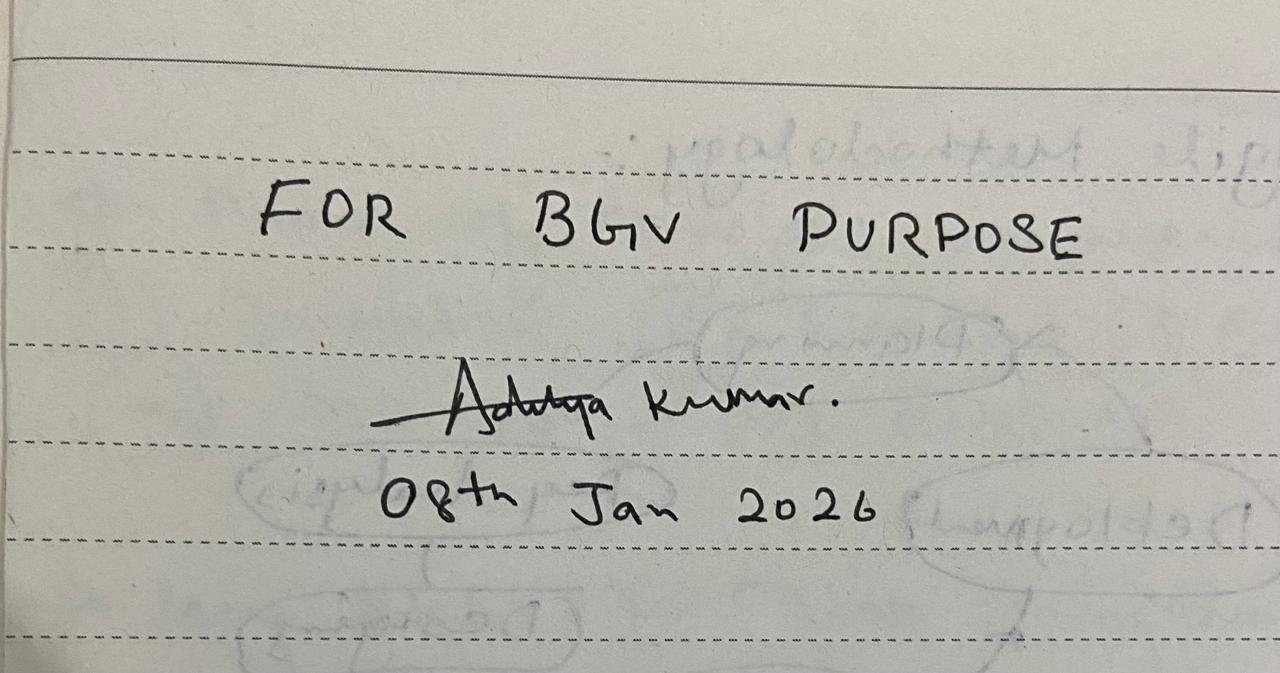 FOR BGV PURPOSE
Aditya Kumar.
08th Jan 2026